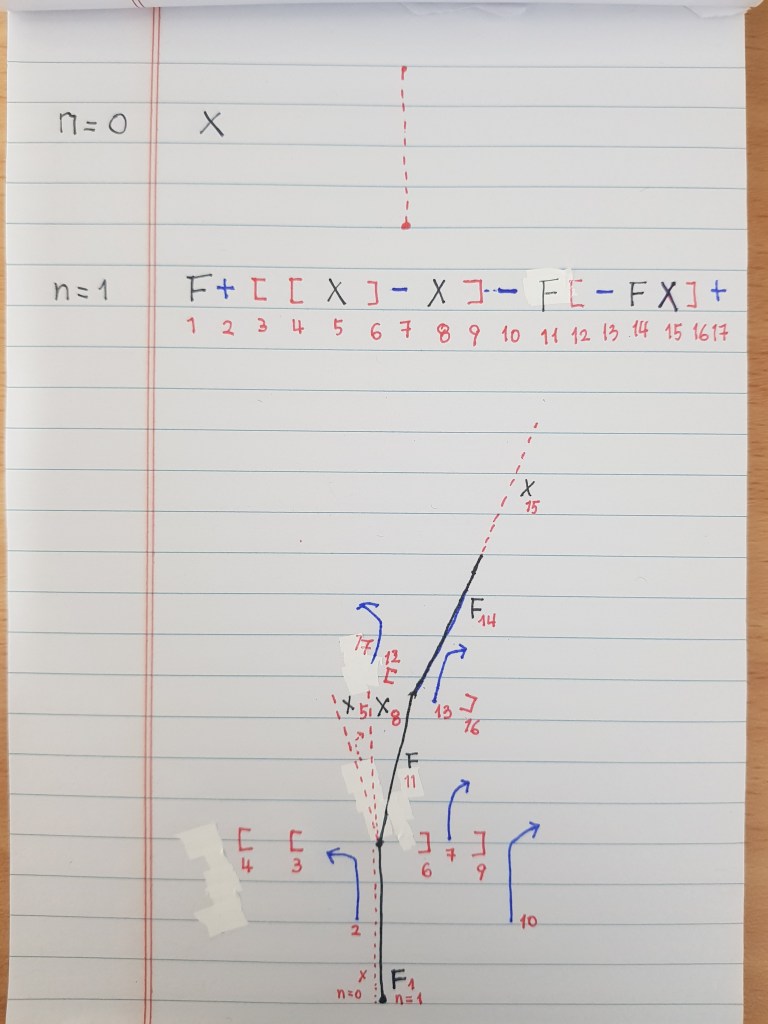 n=0 X
n=1 F+[[X]-X]--F[-FX]+
1 2 3 4 5 6 7 8 9 10 11 12 13 14 15 16 17
X
15
F14
17 12
[
X 5 X 8 13 ]
16
F
11
[ [ ] 7 ]
4 3 6 9
2 10
X F1
n=0 n=1